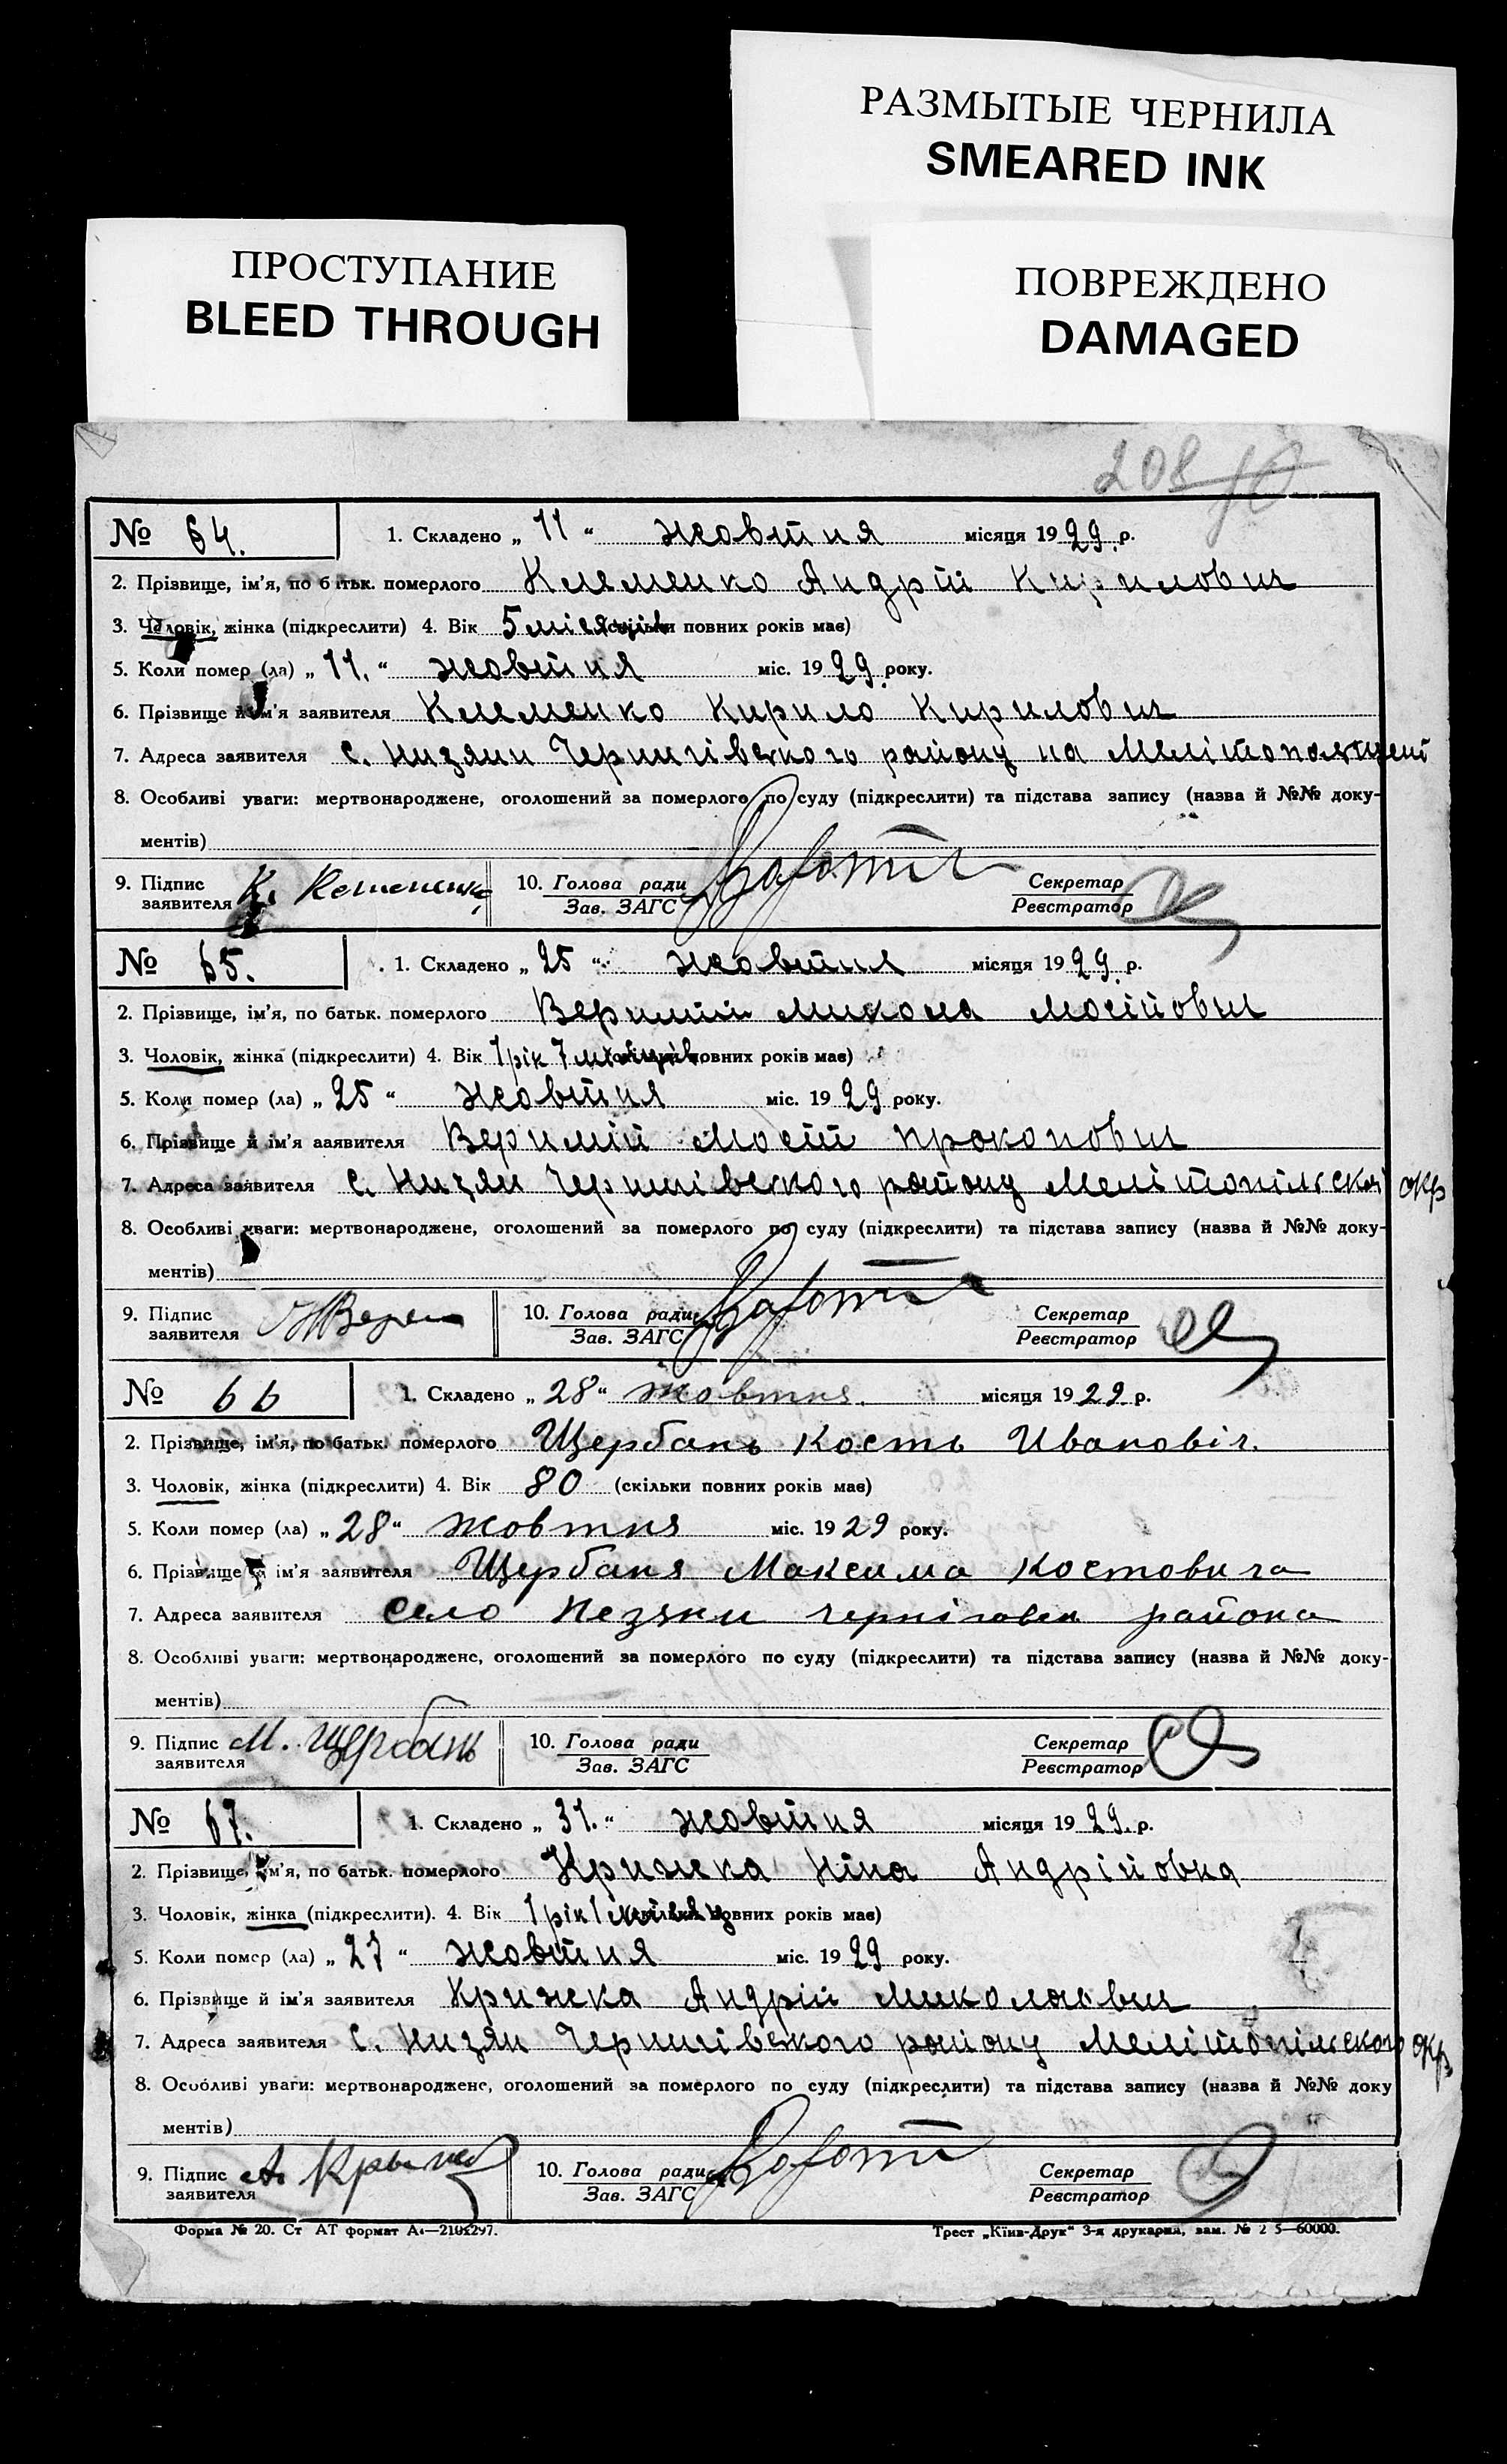 РАЗМЫТЫЕ ЧЕРНИЛА
SMEARED INK
ПРОСТУПАНИЕ
BLEED THROUGH
ПОВРЕЖДЕНО
DAMAGED
208
№ 64. 1. Складено „ 11 “ жовтня місяця 1929. р.
2. Прізвище, ім'я, по батьк. померлого Клименко Андрій Кирилович
3. Чоловік, жінка (підкреслити) 4. Вік 5 місяців повних років має)
5. Коли помер (ла) „ 11. “ жовтня міс. 1929. року.
6. Прізвище й ім'я заявителя Клименко Кирило Кирилович
7. Адреса заявителя с. Низяни Чернигівського району на Мелітопольщені
8. Особливі уваги: мертвонароджене, оголошений за померлого по суду (підкреслити) та підстава запису (назва й №№ доку-
ментів)
9. Підпис заявителя К. 10. Голова ради Зав. ЗАГС Секретар Реєстратор
№ 65. 1. Складено „ 25 “ жовтня місяця 1929. р.
2. Прізвище, ім'я, по батьк. померлого Веримій Микола Мосійович
3. Чоловік, жінка (підкреслити) 4. Вік 1 рік 7 місяців повних років має)
5. Коли помер (ла) „ 25 “ жовтня міс. 1929 року.
6. Прізвище й ім'я заявителя Веримій Мосій Прокопович
7. Адреса заявителя с. Низян Чернигівського району Мелітопільської окр
8. Особливі уваги: мертвонароджене, оголошений за померлого по суду (підкреслити) та підстава запису (назва й №№ доку-
ментів)
9. Підпис заявителя 10. Голова ради Зав. ЗАГС Секретар Реєстратор
№ 66 1. Складено „ 28 “ жовтня. місяця 1929. р.
2. Прізвище, ім'я, по батьк. померлого Щербань Кость Ивановіч.
3. Чоловік, жінка (підкреслити) 4. Вік 80 (скільки повних років має)
5. Коли помер (ла) „ 28 “ жовтня міс. 1929 року.
6. Прізвище й ім'я заявителя Щербаня Максима Костовича
7. Адреса заявителя село Незяни черніговск района
8. Особливі уваги: мертвонароджене, оголошений за померлого по суду (підкреслити) та підстава запису (назва й №№ доку-
ментів)
9. Підпис заявителя М. Щербань 10. Голова ради Зав. ЗАГС Секретар Реєстратор
№ 67. 1. Складено „ 31. “ жовтня місяця 1929. р.
2. Прізвище, ім'я, по батьк. померлого Крижка Ніна Андрійовна
3. Чоловік, жінка (підкреслити). 4. Вік 1 рік 1 місяц повних років має)
5. Коли помер (ла) „ 27 “ жовтня міс. 1929 року.
6. Прізвище й ім'я заявителя Крижка Андрій Миколаєвич
7. Адреса заявителя с. Низян Чернигівського району Мелітопільского окр.
8. Особливі уваги: мертвонароджене, оголошений за померлого по суду (підкреслити) та підстава запису (назва й №№ доку
ментів)
9. Підпис заявителя А. 10. Голова ради Зав. ЗАГС Секретар Реєстратор
Форма № 20. Ст АТ формат А4—210х297. Трест „Київ-Друк“ 3-я друкарня, зам. № 2 5—60000.